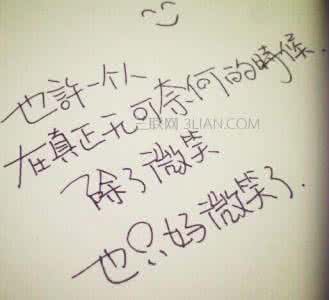 也許一个人
在真正无可奈何的時候.
三联网 3LIAN.COM
除了微笑
也只好微笑了.